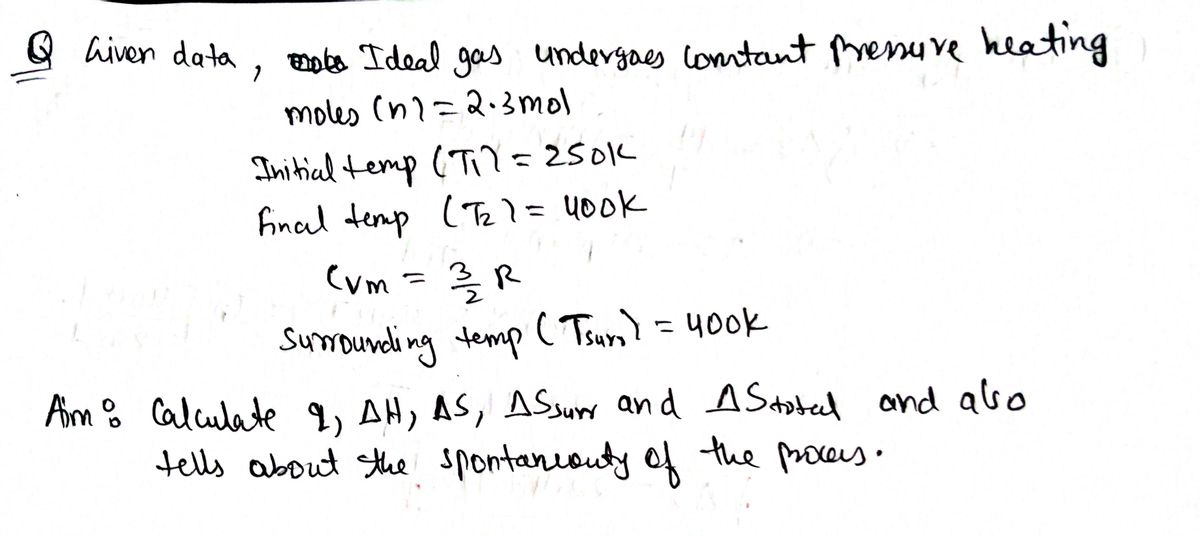 Q Given data, Ideal gas undergoes constant pressure heating
moles (n) = 2.3 mol
Initial temp (T1) = 250K
final temp (T2) = 400K
Cvm = 3/2 R
Surrounding temp (Tsurr) = 400K
Aim: Calculate q, ΔH, ΔS, ΔSsurr and ΔStotal and also
tells about the spontaneouty of the process.